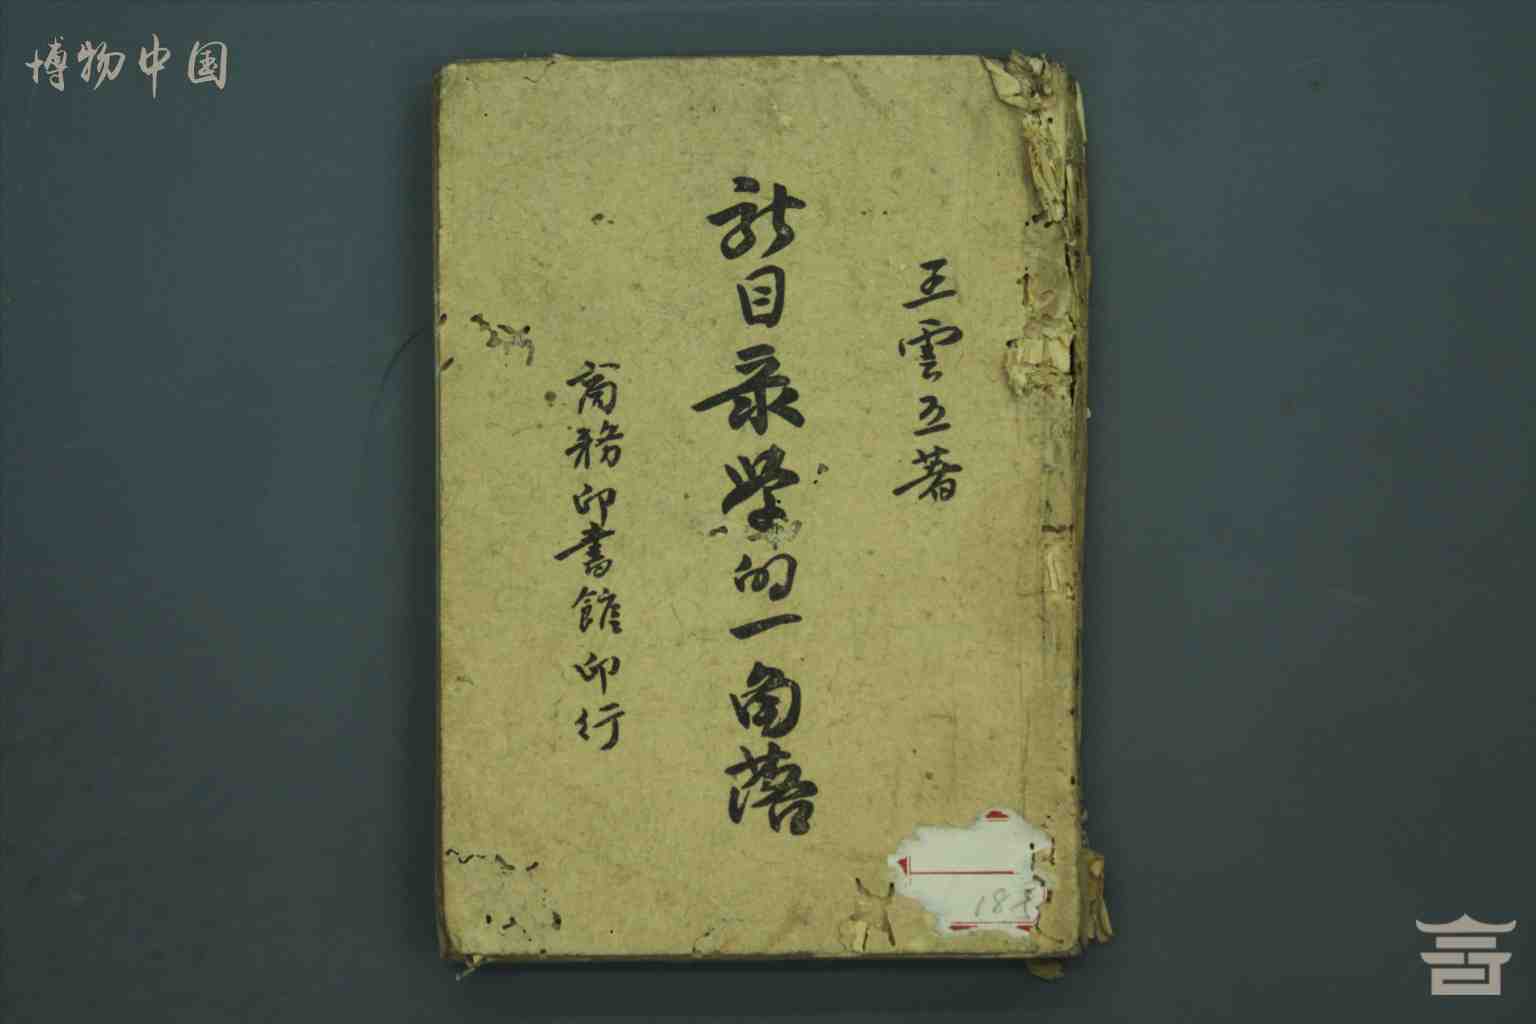 博物中国
王雲五著
新目录学的一角落
商務印書館印行
18